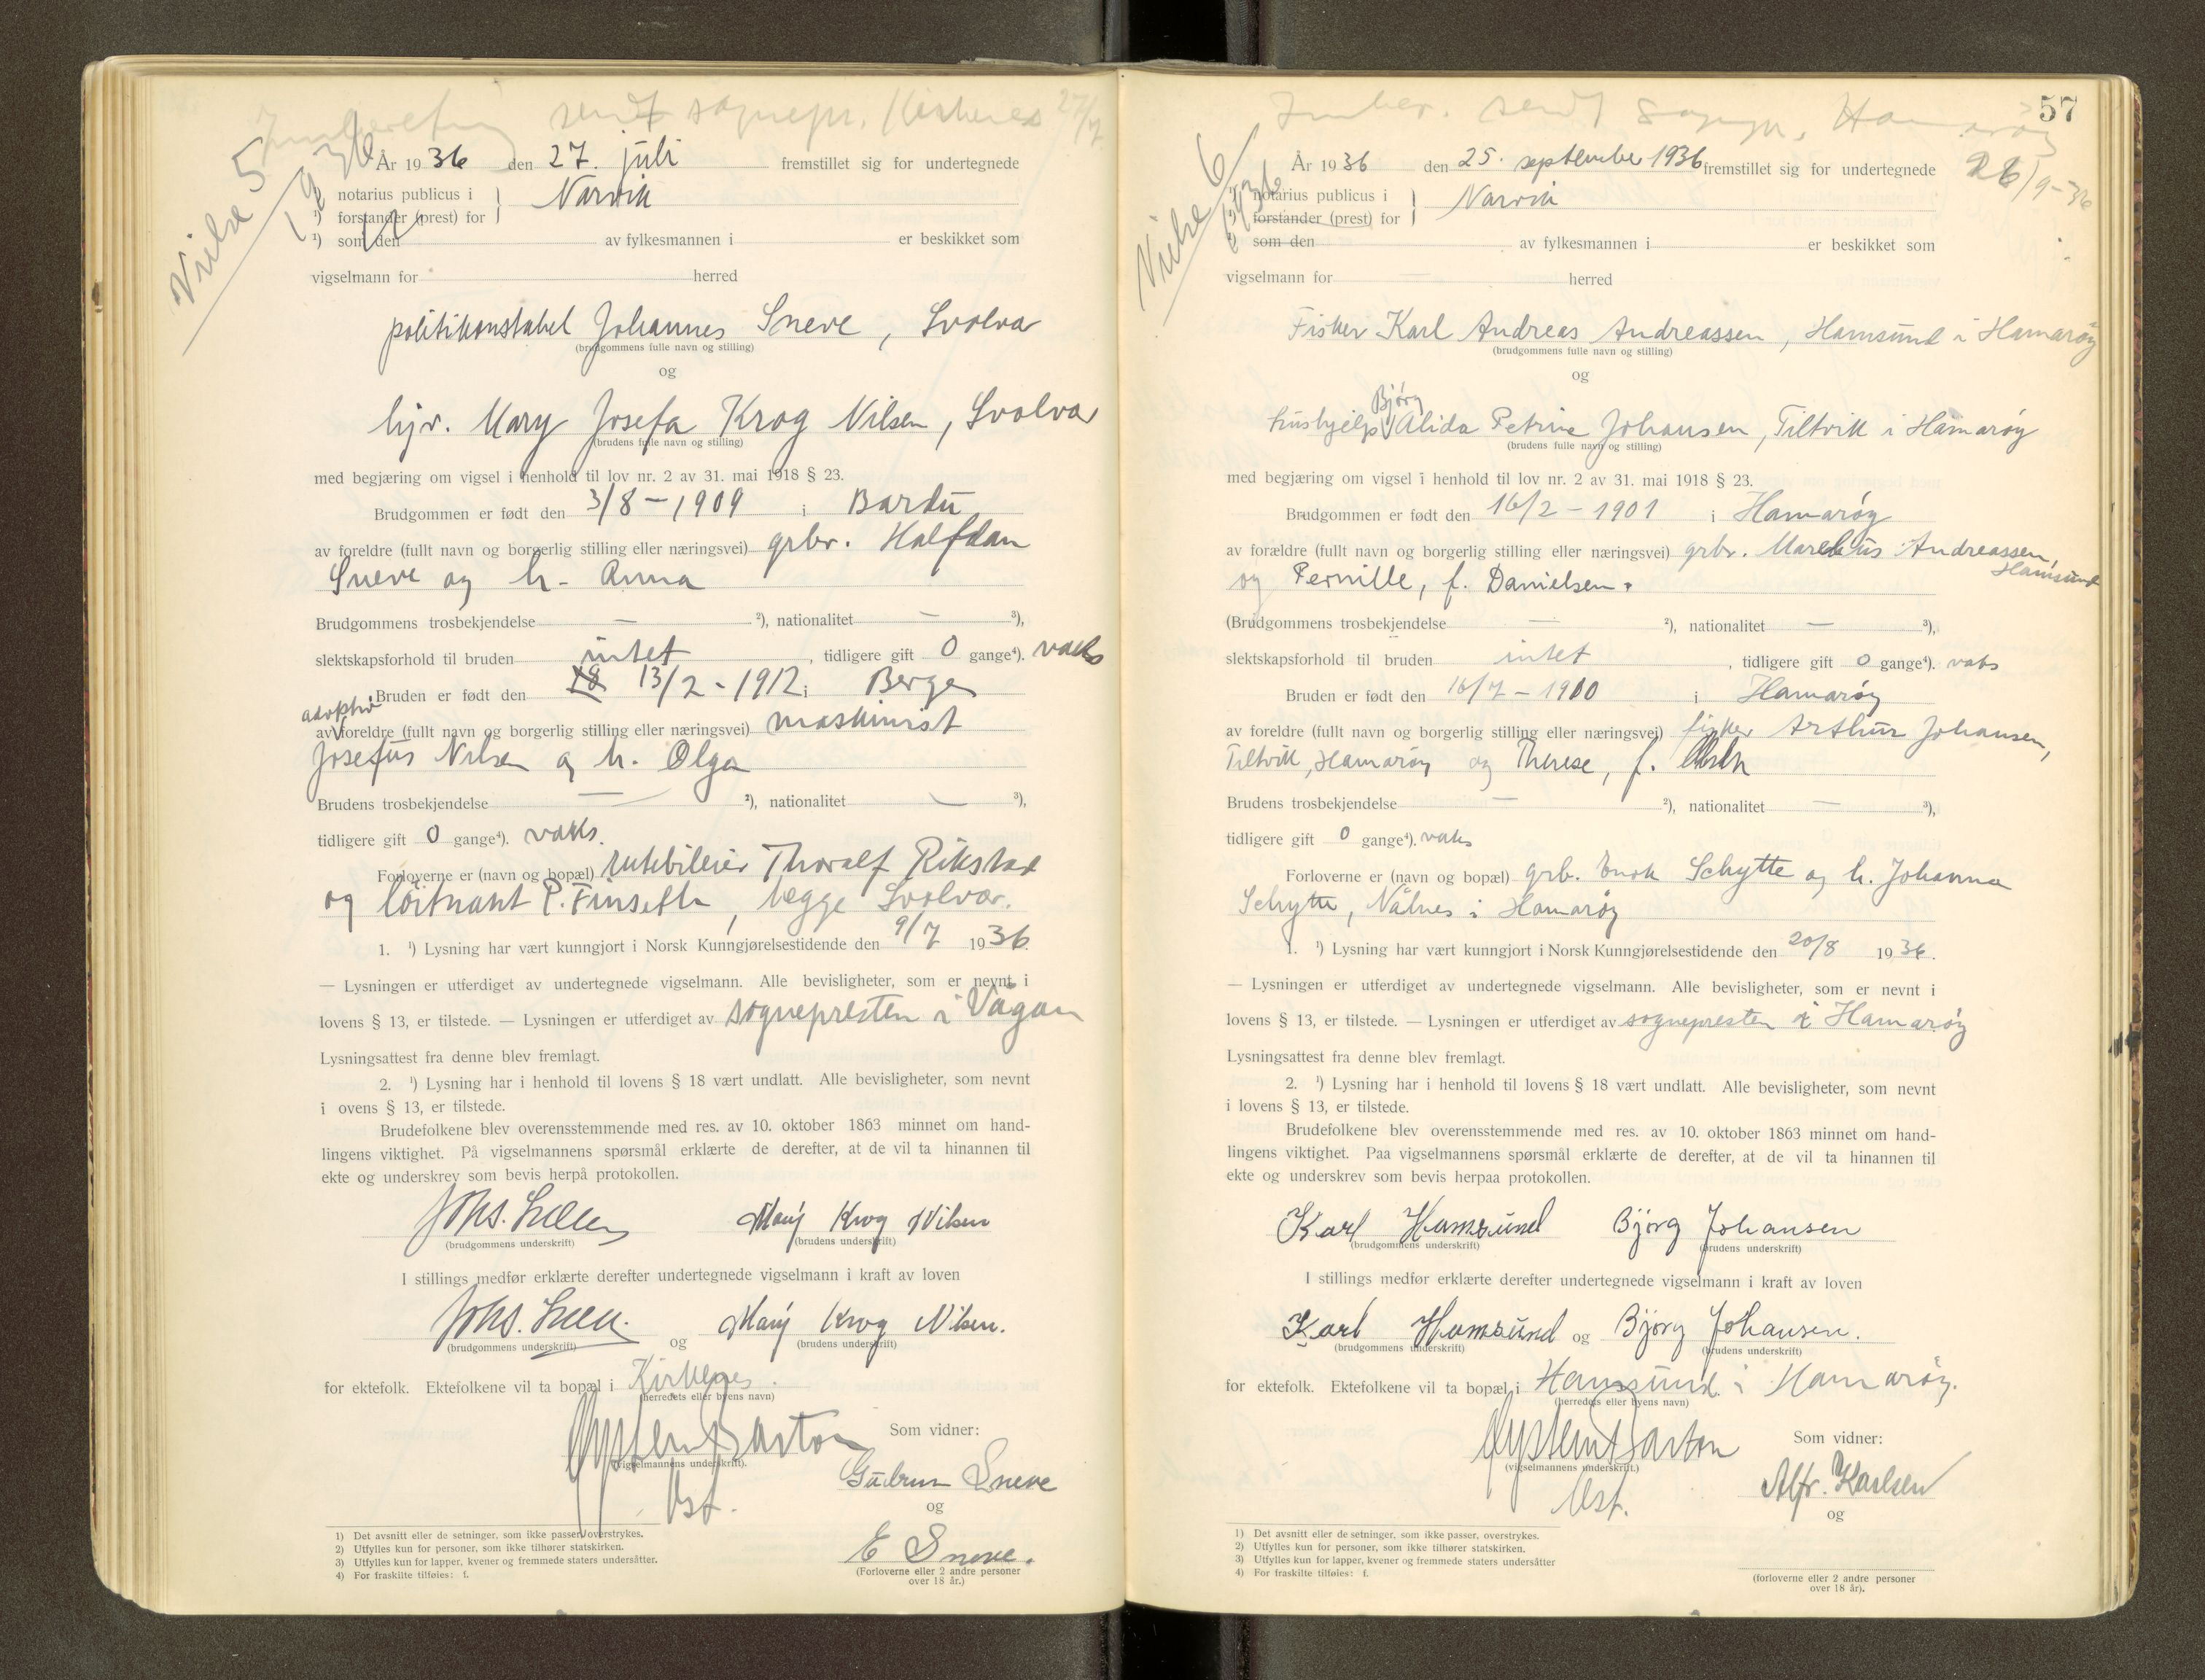 Innberetning sendt sognepr. Kirkenes 27/7
Vielse 5
1936
År 1936 den 27. juli fremstillet sig for undertegnede
¹) notarius publicus i
¹) forstander (prest) for
Narvik
¹) som den av fylkesmannen i er beskikket som
vigselmann for herred
politikonstabel Johannes Sneve, Svolvær
(brudgommens fulle navn og stilling)
og
hjv. Mary Josefa Krog Nilsen, Svolvær
(brudens fulle navn og stilling)
med begjæring om vigsel i henhold til lov nr. 2 av 31. mai 1918 § 23.
Brudgommen er født den 3/8 – 1909 i Bardu
av foreldre (fullt navn og borgerlig stilling eller næringsvei) grbr. Halfdan
Sneve og h. Anna
Brudgommens trosbekjendelse — ²), nationalitet — ³),
slektskapsforhold til bruden intet, tidligere gift 0 gange⁴). vaks
Bruden er født den 18 13/2 - 1912 i Bergen
adoptiv
av foreldre (fullt navn og borgerlig stilling eller næringsvei) maskinist
Josefus Nilsen og h. Olga
Brudens trosbekjendelse — ²), nationalitet — ³),
tidligere gift 0 gange⁴). vaks.
Forloverne er (navn og bopæl) rutebileier Thoralf Rikstad
og löitnant P. Finseth, begge Svolvær.
1. ¹) Lysning har vært kunngjort i Norsk Kunngjørelsestidende den 9/7 1936.
— Lysningen er utferdiget av undertegnede vigselmann. Alle bevisligheter, som er nevnt i
lovens § 13, er tilstede. — Lysningen er utferdiget av sognepresten i Vågan
Lysningsattest fra denne blev fremlagt.
2. ¹) Lysning har i henhold til lovens § 18 vært undlatt. Alle bevisligheter, som nevnt
i ovens § 13, er tilstede.
Brudefolkene blev overensstemmende med res. av 10. oktober 1863 minnet om hand-
lingens viktighet. På vigselmannens spørsmål erklærte de derefter, at de vil ta hinannen til
ekte og underskrev som bevis herpå protokollen.
Johs. Sneve Mary Krog Nilsen
(brudgommens underskrift) (brudens underskrift)
I stillings medfør erklærte derefter undertegnede vigselmann i kraft av loven
Johs. Sneve. og Mary Krog Nilsen.
(brudgommens underskrift) (brudens underskrift)
for ektefolk. Ektefolkene vil ta bopæl i Kirkenes.
(herredets eller byens navn)
Som vidner:
(vigselmannens underskrift).
Gudrun Sneve
og
E Sneve.
(Forloverne eller 2 andre personer
over 18 år.)
1) Det avsnitt eller de setninger, som ikke passer, overstrykes.
2) Utfylles kun for personer, som ikke tilhører statskirken.
3) Utfylles kun for lapper, kvener og fremmede staters undersåtter.
4) For fraskilte tilføles: f.
57
Innber. sendt sognepr. Hamarøy
26/9-36
Vielse 6
1936
År 1936 den 25. september 1936 fremstillet sig for undertegnede
¹) notarius publicus i
¹) forstander (prest) for
Narvik
¹) som den av fylkesmannen i er beskikket som
vigselmann for — herred
Fisker Karl Andreas Andreassen, Hamsund i Hamarøy
(brudgommens fulle navn og stilling)
og
Björg
hushjelp Alida Petrine Johansen, Tiltvik i Hamarøy
(brudens fulle navn og stilling)
med begjæring om vigsel i henhold til lov nr. 2 av 31. mai 1918 § 23.
Brudgommen er født den 16/2 – 1901 i Hamarøy
av forældre (fullt navn og borgerlig stilling eller næringsvei) grbr. Marelius Andreassen,
Hamsund
og Pernille, f. Danielsen.
(Brudgommens trosbekjendelse — ²), nationalitet — ³),
slektskapsforhold til bruden intet, tidligere gift 0 gange⁴). vaks
Bruden er født den 16/7 – 1910 i Hamarøy
av foreldre (fullt navn og borgerlig stilling eller næringsvei) fisker Arthur Johansen,
Tiltvik, Hamarøy og Therese, f. Olsen
Brudens trosbekjendelse — ²), nationalitet — ³),
tidligere gift 0 gange⁴). vaks
Forloverne er (navn og bopæl) grb. Enok Schytte og h. Johanna
Schytte, Nålnes i Hamarøy
1. ¹) Lysning har vært kunngjort i Norsk Kunngjørelsestidende den 20/8 1936.
— Lysningen er utferdiget av undertegnede vigselmann. Alle bevisligheter, som er nevnt i
lovens § 13, er tilstede. — Lysningen er utferdiget av sognepresten i Hamarøy
Lysningsattest fra denne blev fremlagt.
2. ¹) Lysning har i henhold til lovens § 18 vært undlatt. Alle bevisligheter, som nevnt
i lovens § 13, er tilstede.
Brudefolkene blev overensstemmende med res. av 10. oktober 1863 minnet om hand-
lingens viktighet. Paa vigselmannens spørsmål erklærte de derefter, at de vil ta hinannen til
ekte og underskrev som bevis herpaa protokollen.
Karl Hamsund Bjørg Johansen
(brudgommens underskrift) (brudens underskrift)
I stillings medfør erklærte derefter undertegnede vigselmann i kraft av loven
Karl Hamsund og Bjørg Johansen.
(brudgommens underskrift) (brudens underskrift)
for ektefolk. Ektefolkene vil ta bopæl i Hamsund i Hamarøy.
(herredets eller byens navn)
Som vidner:
(vigselmannens underskrift.)
Alfr. Karlsen
og
(forloverne eller 2 andre personer
over 18 år).
1) Det avsnitt eller de setninger, som ikke passer, overstrykes.
2) Utfylles kun for personer, som ikke tilhører statskirken.
3) Utfylles kun for lapper, kvener og fremmede staters undersåtter
4) For fraskilte tilføles: f.